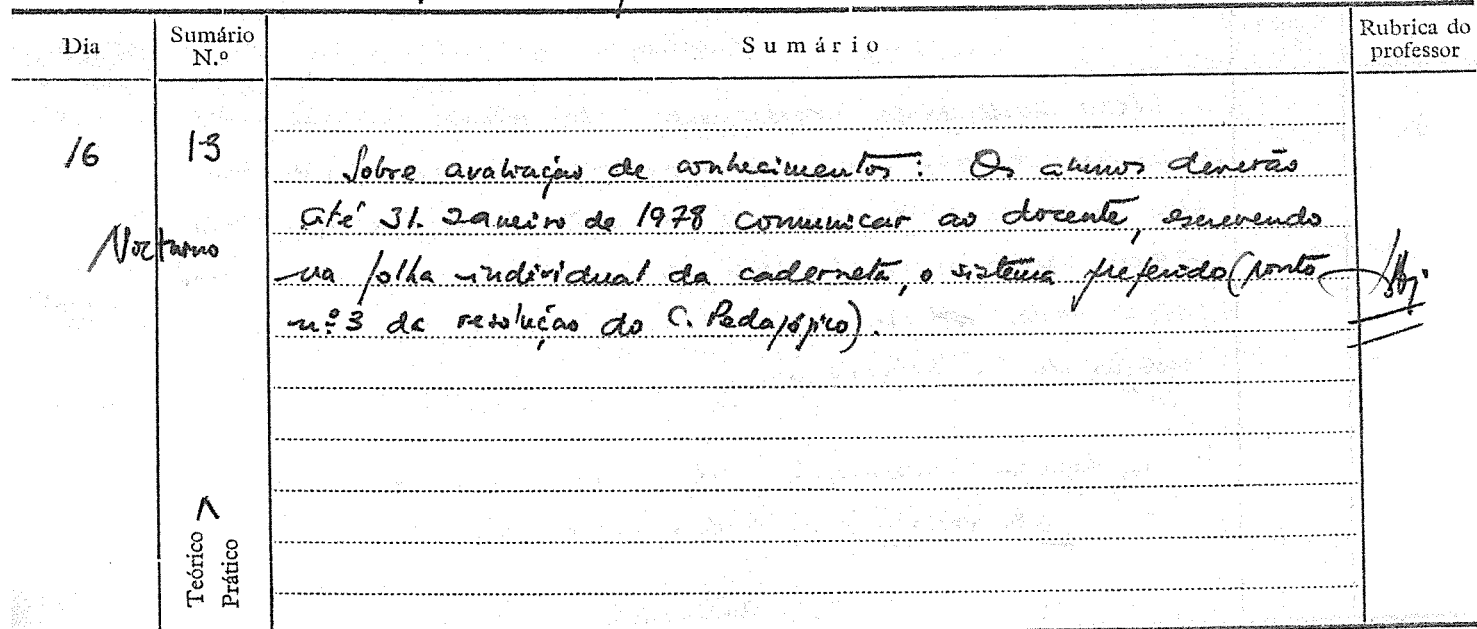 Dia
Sumário N.º
Sumário
Rubrica do professor
16
13
Nocturno
Sobre avaliação de conhecimentos: Os alunos deverão
até 31. Janeiro de 1978 comunicar ao docente, escrevendo
na folha individual da caderneta, o sistema preferido (ponto
nº 3 da resolução do C. Pedagógico).
Teórico
Prático